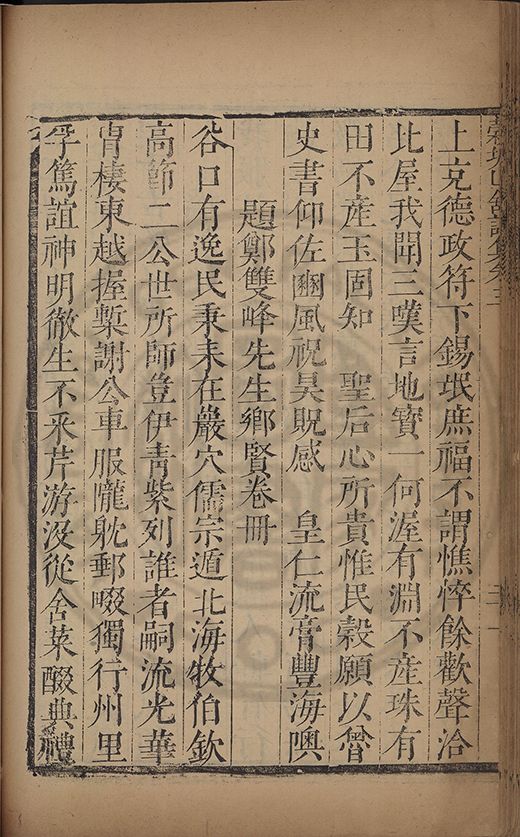 上克德政符下錫氓庶福不謂憔悴餘歡聲洽
比屋我聞三嘆言地寶一何渥有淵不產珠有
田不產玉固知　聖后心所貴惟民穀願以
史書仰佐豳風祝昊貺感　皇仁流膏豐海隩
題鄭雙峰先生鄉賢卷冊
谷口有逸民秉耒在巖穴儒宗遁北海牧伯欽
高節二公世所師豈伊青紫列誰者嗣流光華
胄棲東越握槧謝公車服隴躭郵啜獨行州里
孚篤誼神明徹生不釆芹游沒從舍菜醊典禮